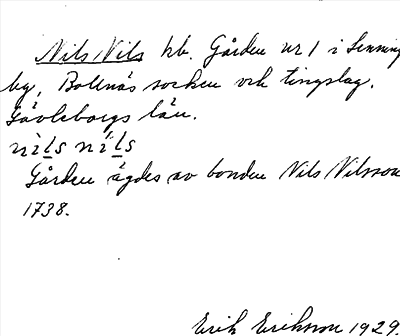 Nils Nils kb. Gården nr 1 i Senning
by, Bollnäs socken och tingslag.
Gävleborgs län.
nils nils
Gården ägdes av bonden Nils Nilsson
1738.
Erik Eriksson 1929.